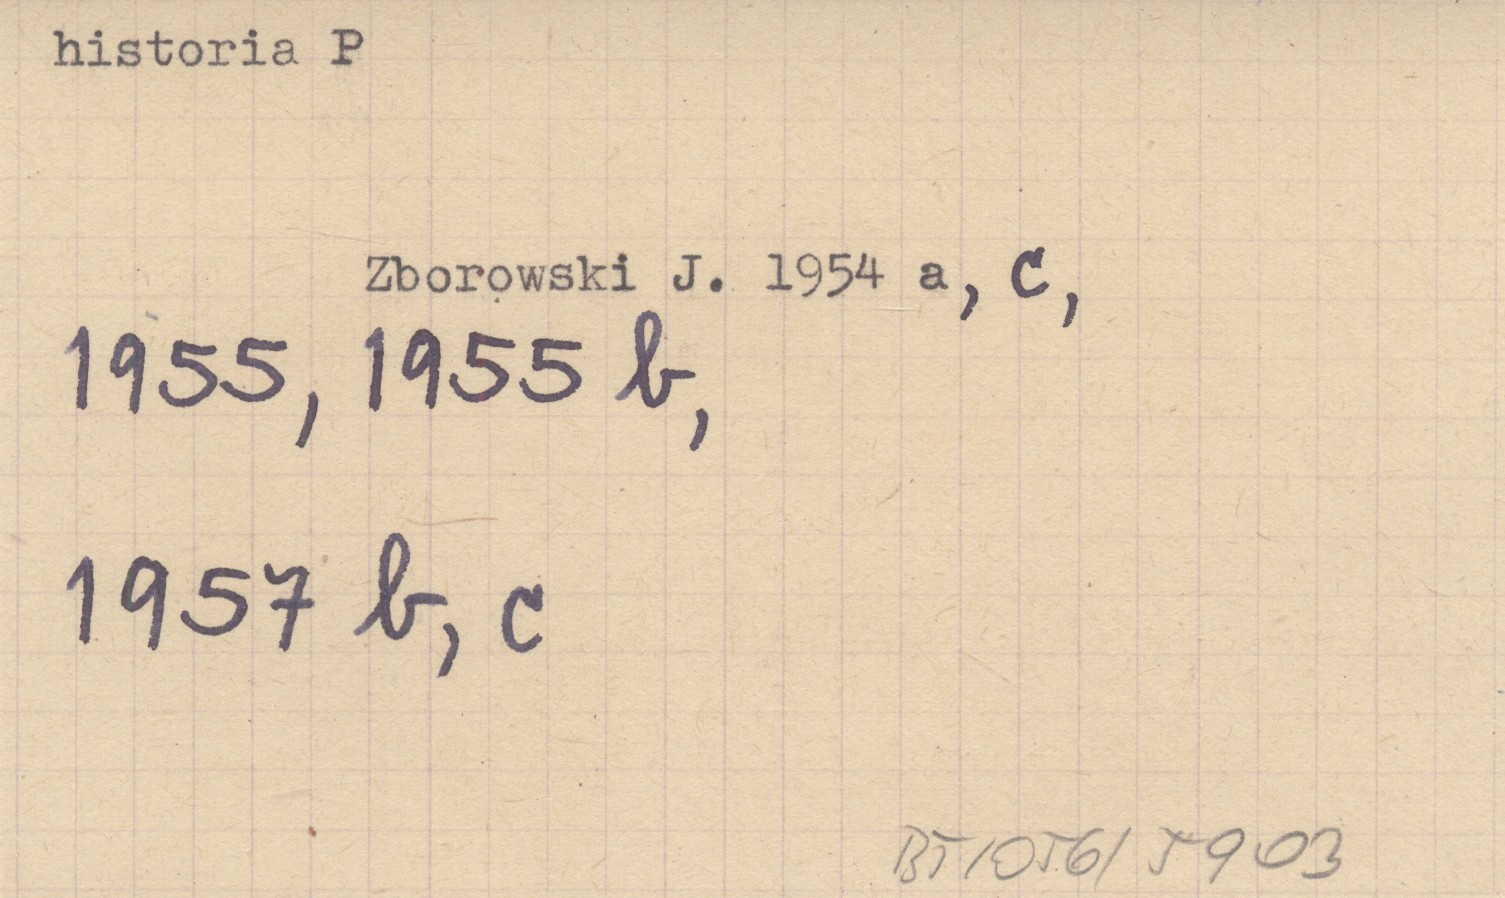 historia P
Zborowski J. 1954 a, c,
1955, 1955 b,
1957 b, c
BT/056/5903